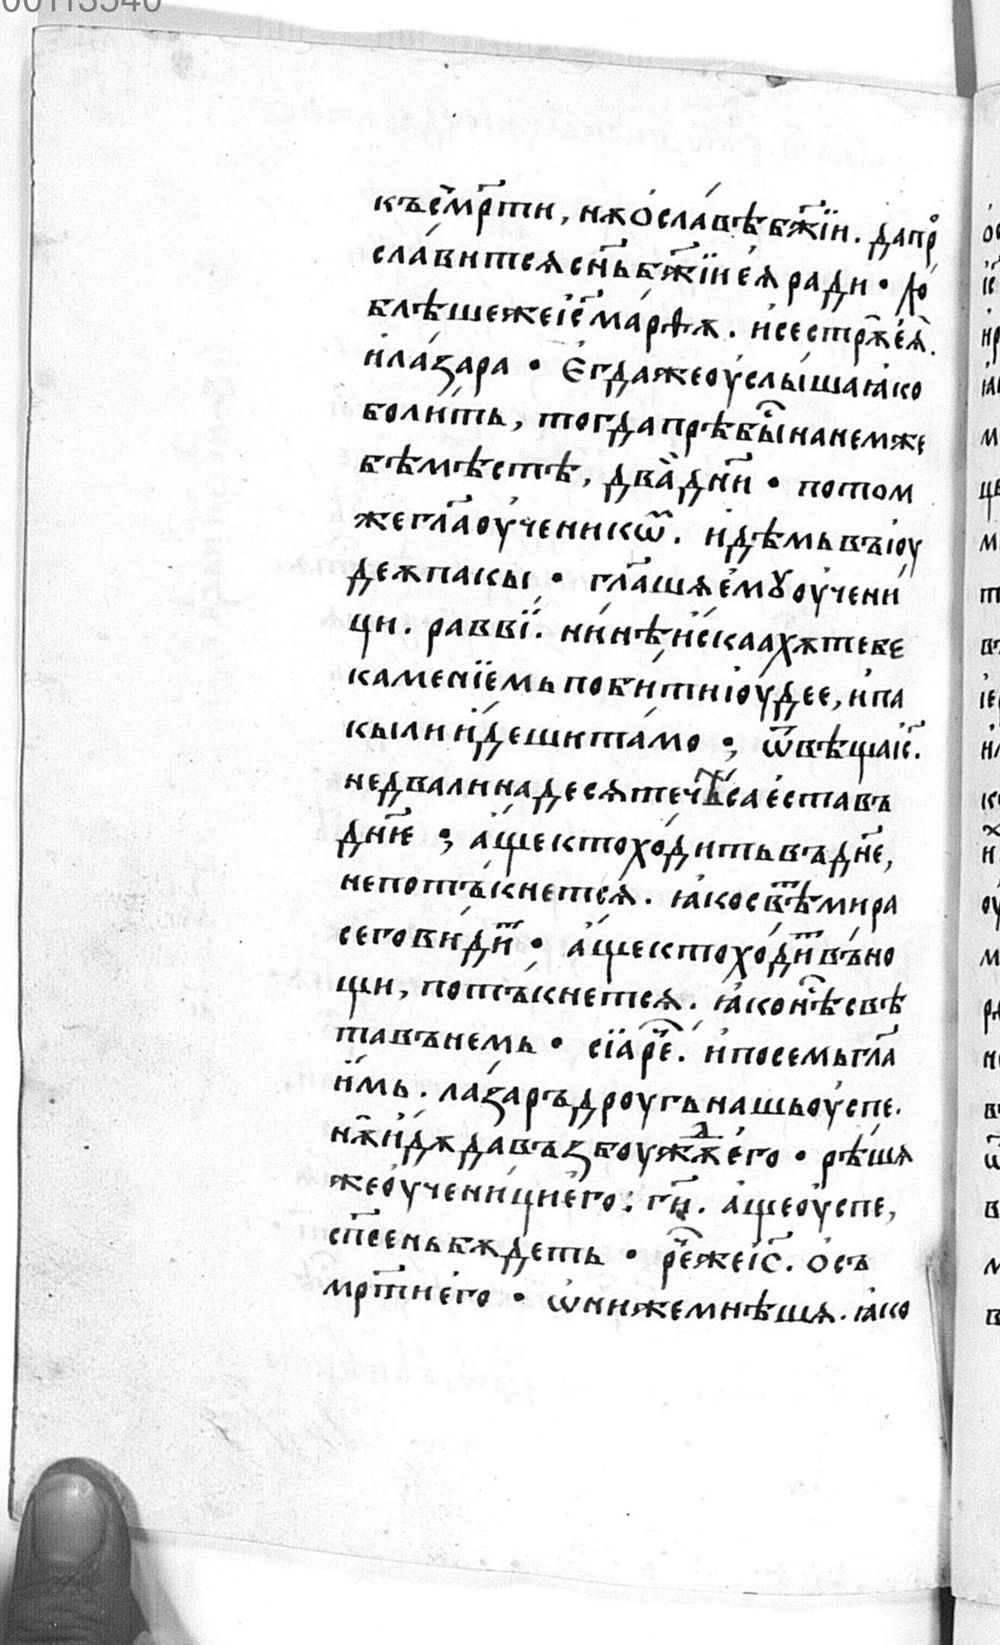 00113540
къ съмр҃ти, нѫ о славѣ бж҃їи. да про
славитсѧ сн҃ь бж҃їи еѧ ради · лю
блѣше же іс҃ марѳѫ. и сестрѫ еѧ.
и лаꙁарѣ · Егда же оуслыша ꙗко
болить, тогда прѣбы на немже
бѣ мѣстѣ, два дн҃и · потом
же гл҃а оученикѡм. идѣмь въ іоу
деѫ пакы · гл҃ашѧ емꙋ оучени
ци. равви. нинѣ искаахѫ тебе
каменїемь побити іоудее, и па
кы ли идеши тамо ; ѿвѣща іс҃.
не два ли на десѧте чѧса еста въ
дн҃не ; аще кто ходить въ дн҃е,
не потъкнетсѧ. ꙗко свѣт мира
сего видит · аще кто ходит въ но
щи, потъкнетсѧ. ꙗко нѣс свѣ
та въ немь · сїа реч. и по семь гл҃а
имь. лаꙁаръ дроугь нашь оуспе.
нѫ идѫ да възбоуждѫ его · рѣшѧ
же оученици его : ги҃. аще оуспе,
сп҃сень бѫдеть · реч же іс҃. о съ
мр҃ти его · ѡни же мнѣшѧ. ꙗко